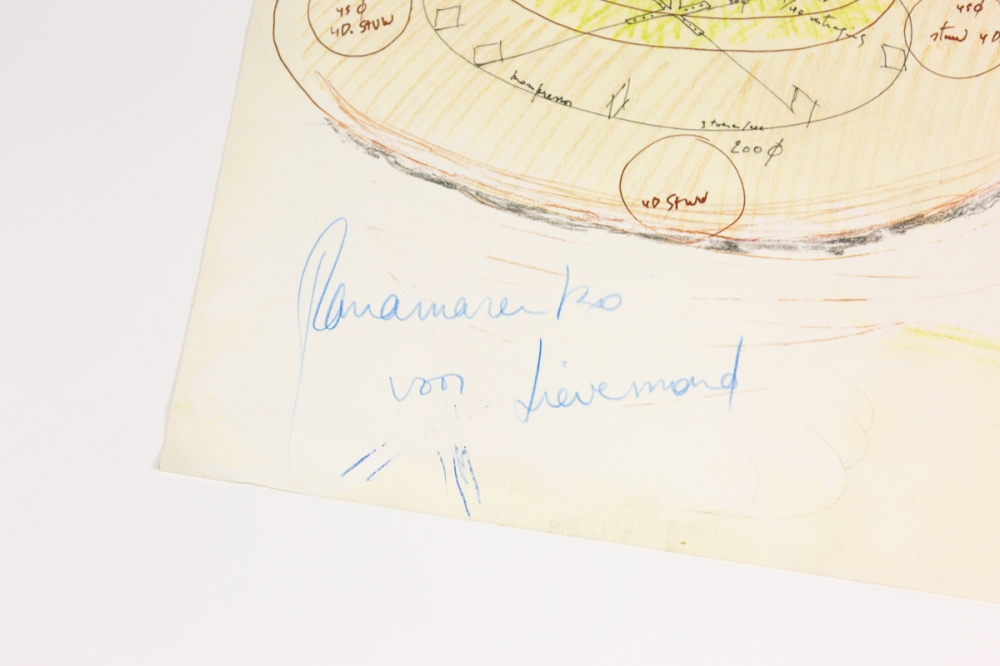 45 φ
4D. STUW
45 φ
stuw 4D
kompressor
200 φ
4D STUW
Panamarenko
voor Lievemond